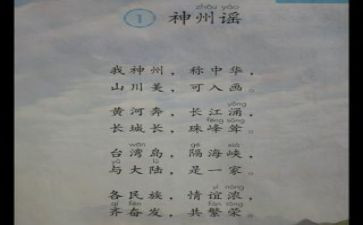 zhōu yáo
1 神州谣
我神州，称中华，
山川美，可入画。
yǒng
黄河奔，长江涌，
fēng sǒng
长城长，珠峰耸。
wān gé xiá
台湾岛，隔海峡，
yǔ lù
与大陆，是一家。
yì nóng
各民族，情谊浓，
qí fèn fán róng
齐奋发，共繁荣。